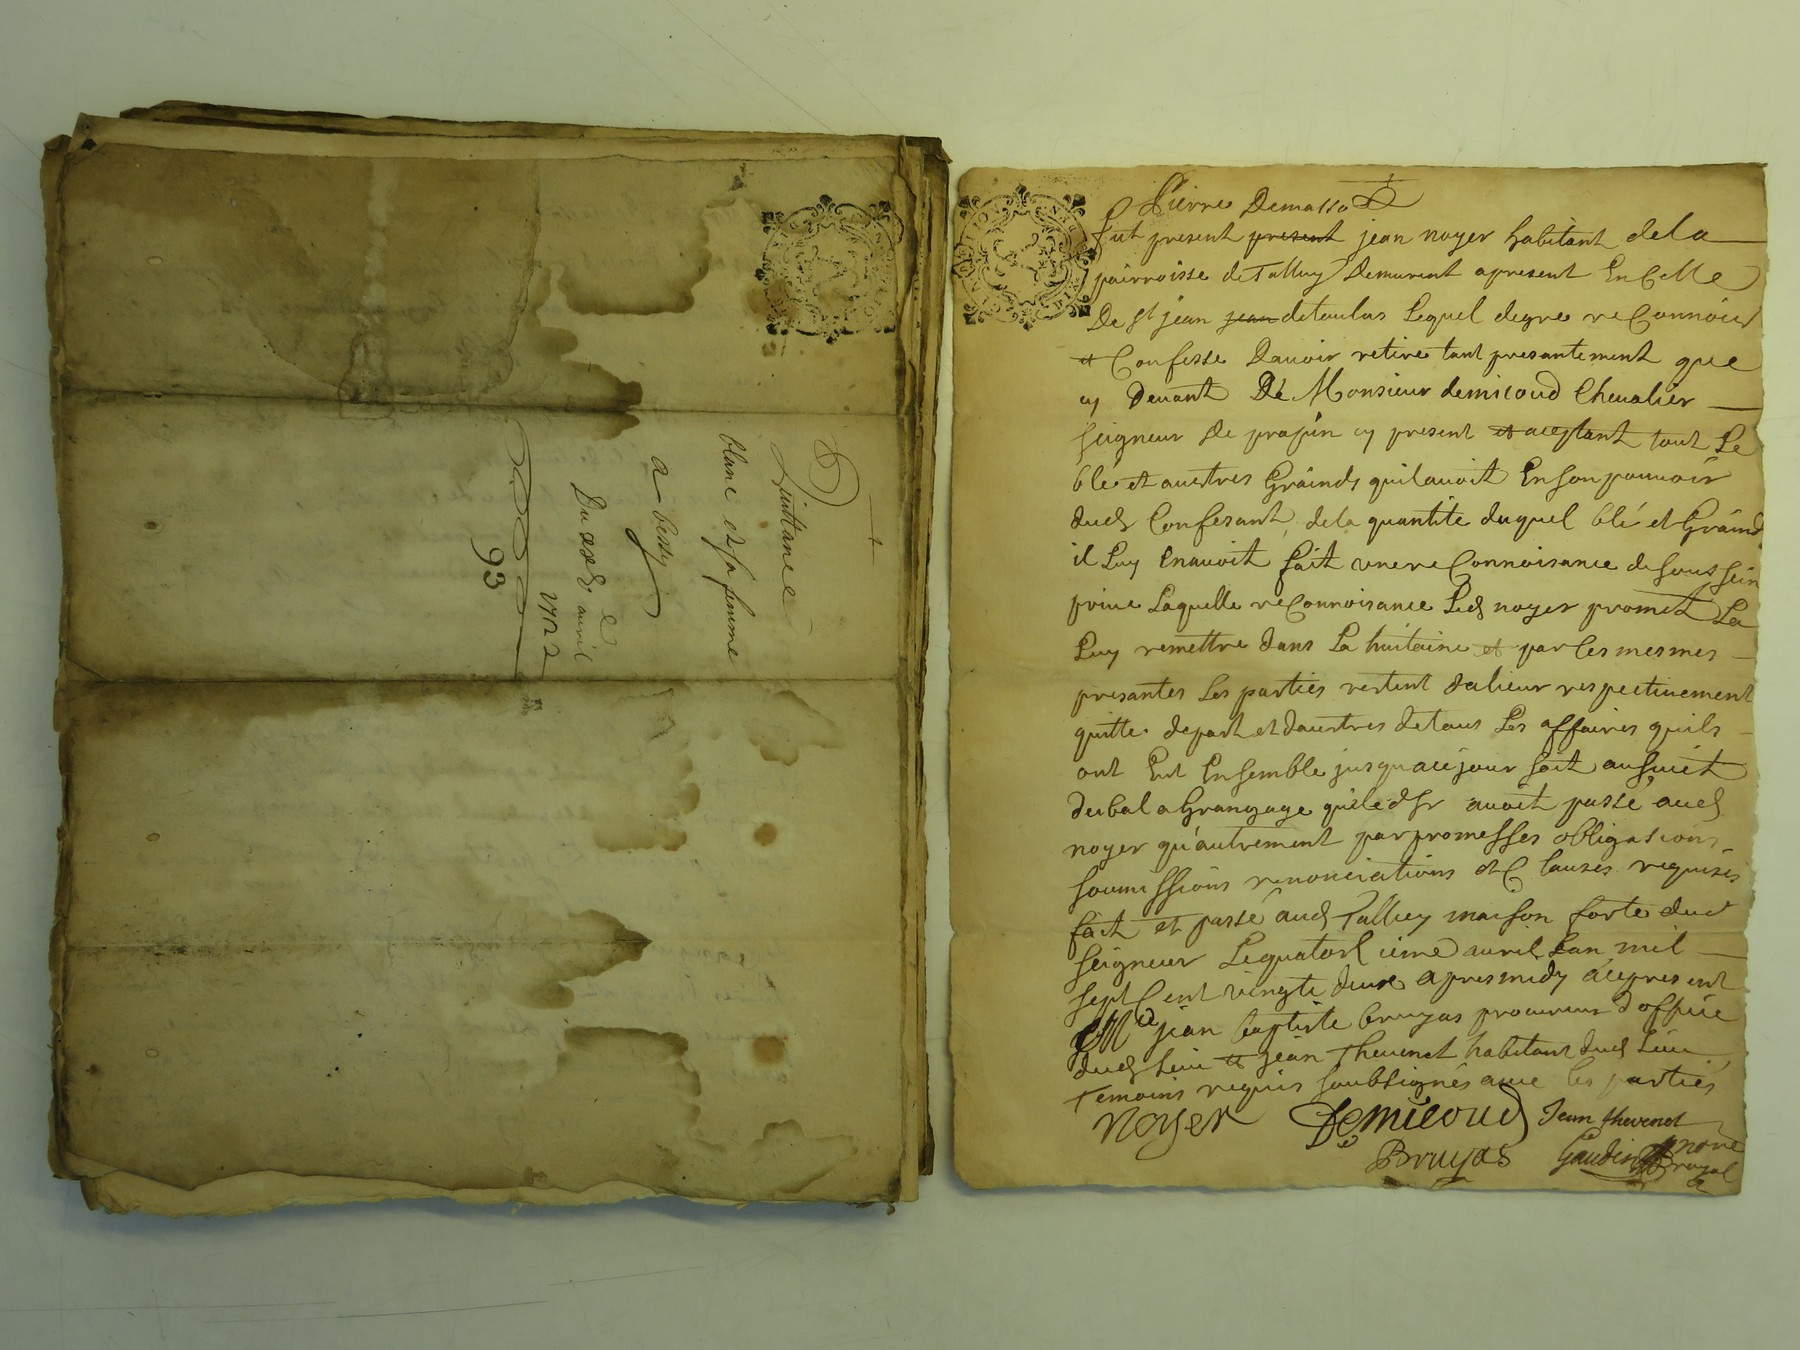 Quittance
blanc et sa femme
a bessy
Du xxe avril
1722
93
Pierre Demasso
fut present present jean noyer habitant dela
pairroisse de Talluy Demurent apresent En Celle
De st jean jean detoulas Lequel degre reConnoist
et Confesse Dauoir retire tant presantement que
cy Deuant De Monsieur demicoud Cheualier
seigneur De projin cy present et aceptant tout Le
blé et auettres Grainds quil auoit En son pouuoir
dud Confesant de la quantite duquel blé et Graind
il Luy Enauoit fait vne reConnoisance de sous sein
priue Laquelle reConnoisance Led noyer promet La
Luy remettre dans La huitaine et par les mesmes
presantes Les parties restent dalieur respectiuement
quitte depart et dauttres de tous Les affaires quils
ont Eut Ensemble jusqua ce jour soit au sujet
du bal a Grangage quil led sr auoit passé aud
noyer qu'autrement par promesses obligasions
soumissions renonciations et Clauses requises
fait et passé aud Talluy maison forte dud
seigneur Le quatorsieme auril Lan mil
sept Cent vingte deux apresmidy acepresent
Me jean baptiste bruyas procureur doffice
dud Lieu et jean Theuenet habitant dud Lieu
Temoins requis soubsignés auec les parties
noyer Demicoud Jean theuenet
Bruyas Gaudin nore
royal